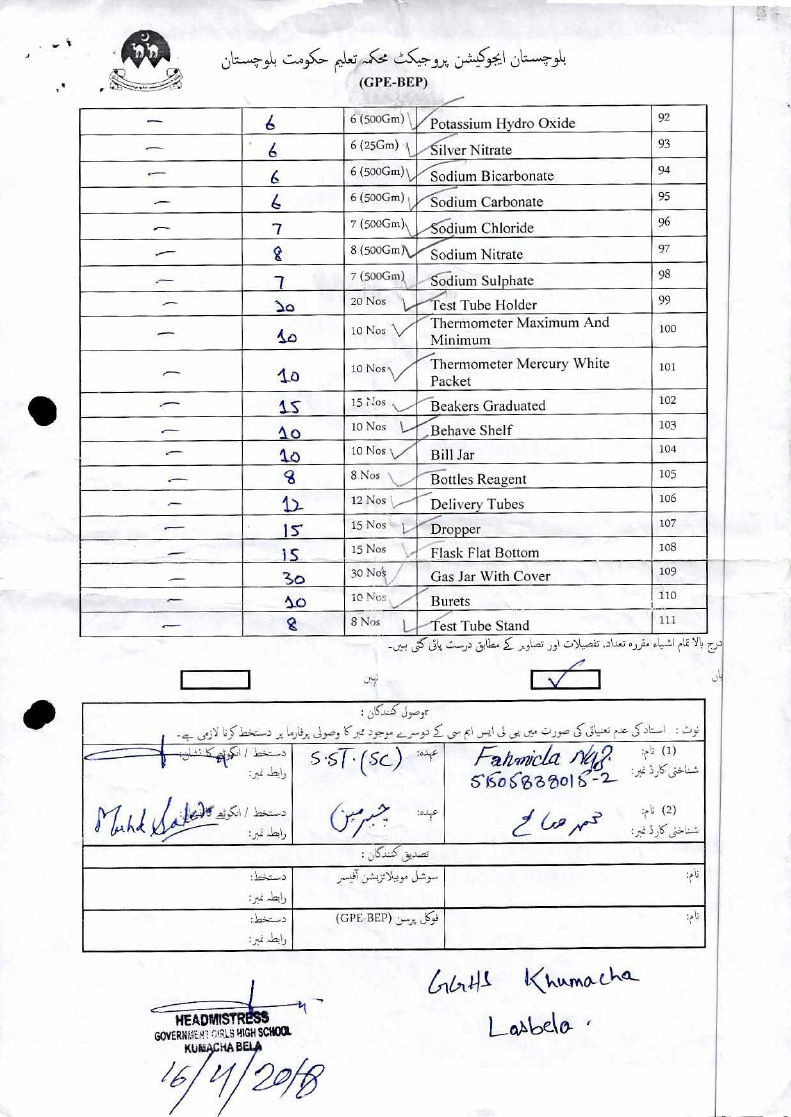 بلوچستان ایجوکیشن پروجیکٹ محکمہ تعلیم حکومت بلوچستان
(GPE-BEP)
— 6 6 (500Gm) Potassium Hydro Oxide 92
— 6 6 (25Gm) Silver Nitrate 93
— 6 6 (500Gm) Sodium Bicarbonate 94
— 6 6 (500Gm) Sodium Carbonate 95
— 7 7 (500Gm) Sodium Chloride 96
— 8 8 (500Gm) Sodium Nitrate 97
— 7 7 (500Gm) Sodium Sulphate 98
— 20 20 Nos Test Tube Holder 99
— 10 10 Nos Thermometer Maximum And 100
Minimum
— 10 10 Nos Thermometer Mercury White 101
Packet
— 15 15 Nos Beakers Graduated 102
— 10 10 Nos Behave Shelf 103
— 10 10 Nos Bill Jar 104
— 8 8 Nos Bottles Reagent 105
— 12 12 Nos Delivery Tubes 106
— 15 15 Nos Dropper 107
— 15 15 Nos Flask Flat Bottom 108
— 30 30 Nos Gas Jar With Cover 109
— 10 10 Nos Burets 110
— 8 8 Nos Test Tube Stand 111
درج بالا تمام اشیاء مقررہ تعداد، تفصیلات اور تصاویر کے مطابق درست پائی گئی ہیں۔
ہاں ✓ نہیں
وصول کنندگان :
نوٹ : استاد کی عدم تعیناتی کی صورت میں پی ٹی ایس ایم سی کے دوسرے موجود ممبر کا وصولی پرفارما پر دستخط کرنا لازمی ہے۔
(1) نام: Fahmida عہدہ: S.ST.(SC) دستخط / انگوٹھے کا نشان:
شناختی کارڈ نمبر: 51505838015-2 رابطہ نمبر:
(2) نام: محمد صالح عہدہ: چیرمین دستخط / انگوٹھے کا نشان: Muhd Saleh
شناختی کارڈ نمبر: رابطہ نمبر:
تصدیق کنندگان :
نام: سوشل موبیلائزیشن آفیسر دستخط:
رابطہ نمبر:
نام: فوکل پرسن (GPE-BEP) دستخط:
رابطہ نمبر:
GGHS Khumacha
Lasbela.
HEADMISTRESS
GOVERNMENT GIRLS HIGH SCHOOL
KUMACHA BELA
16/4/2018